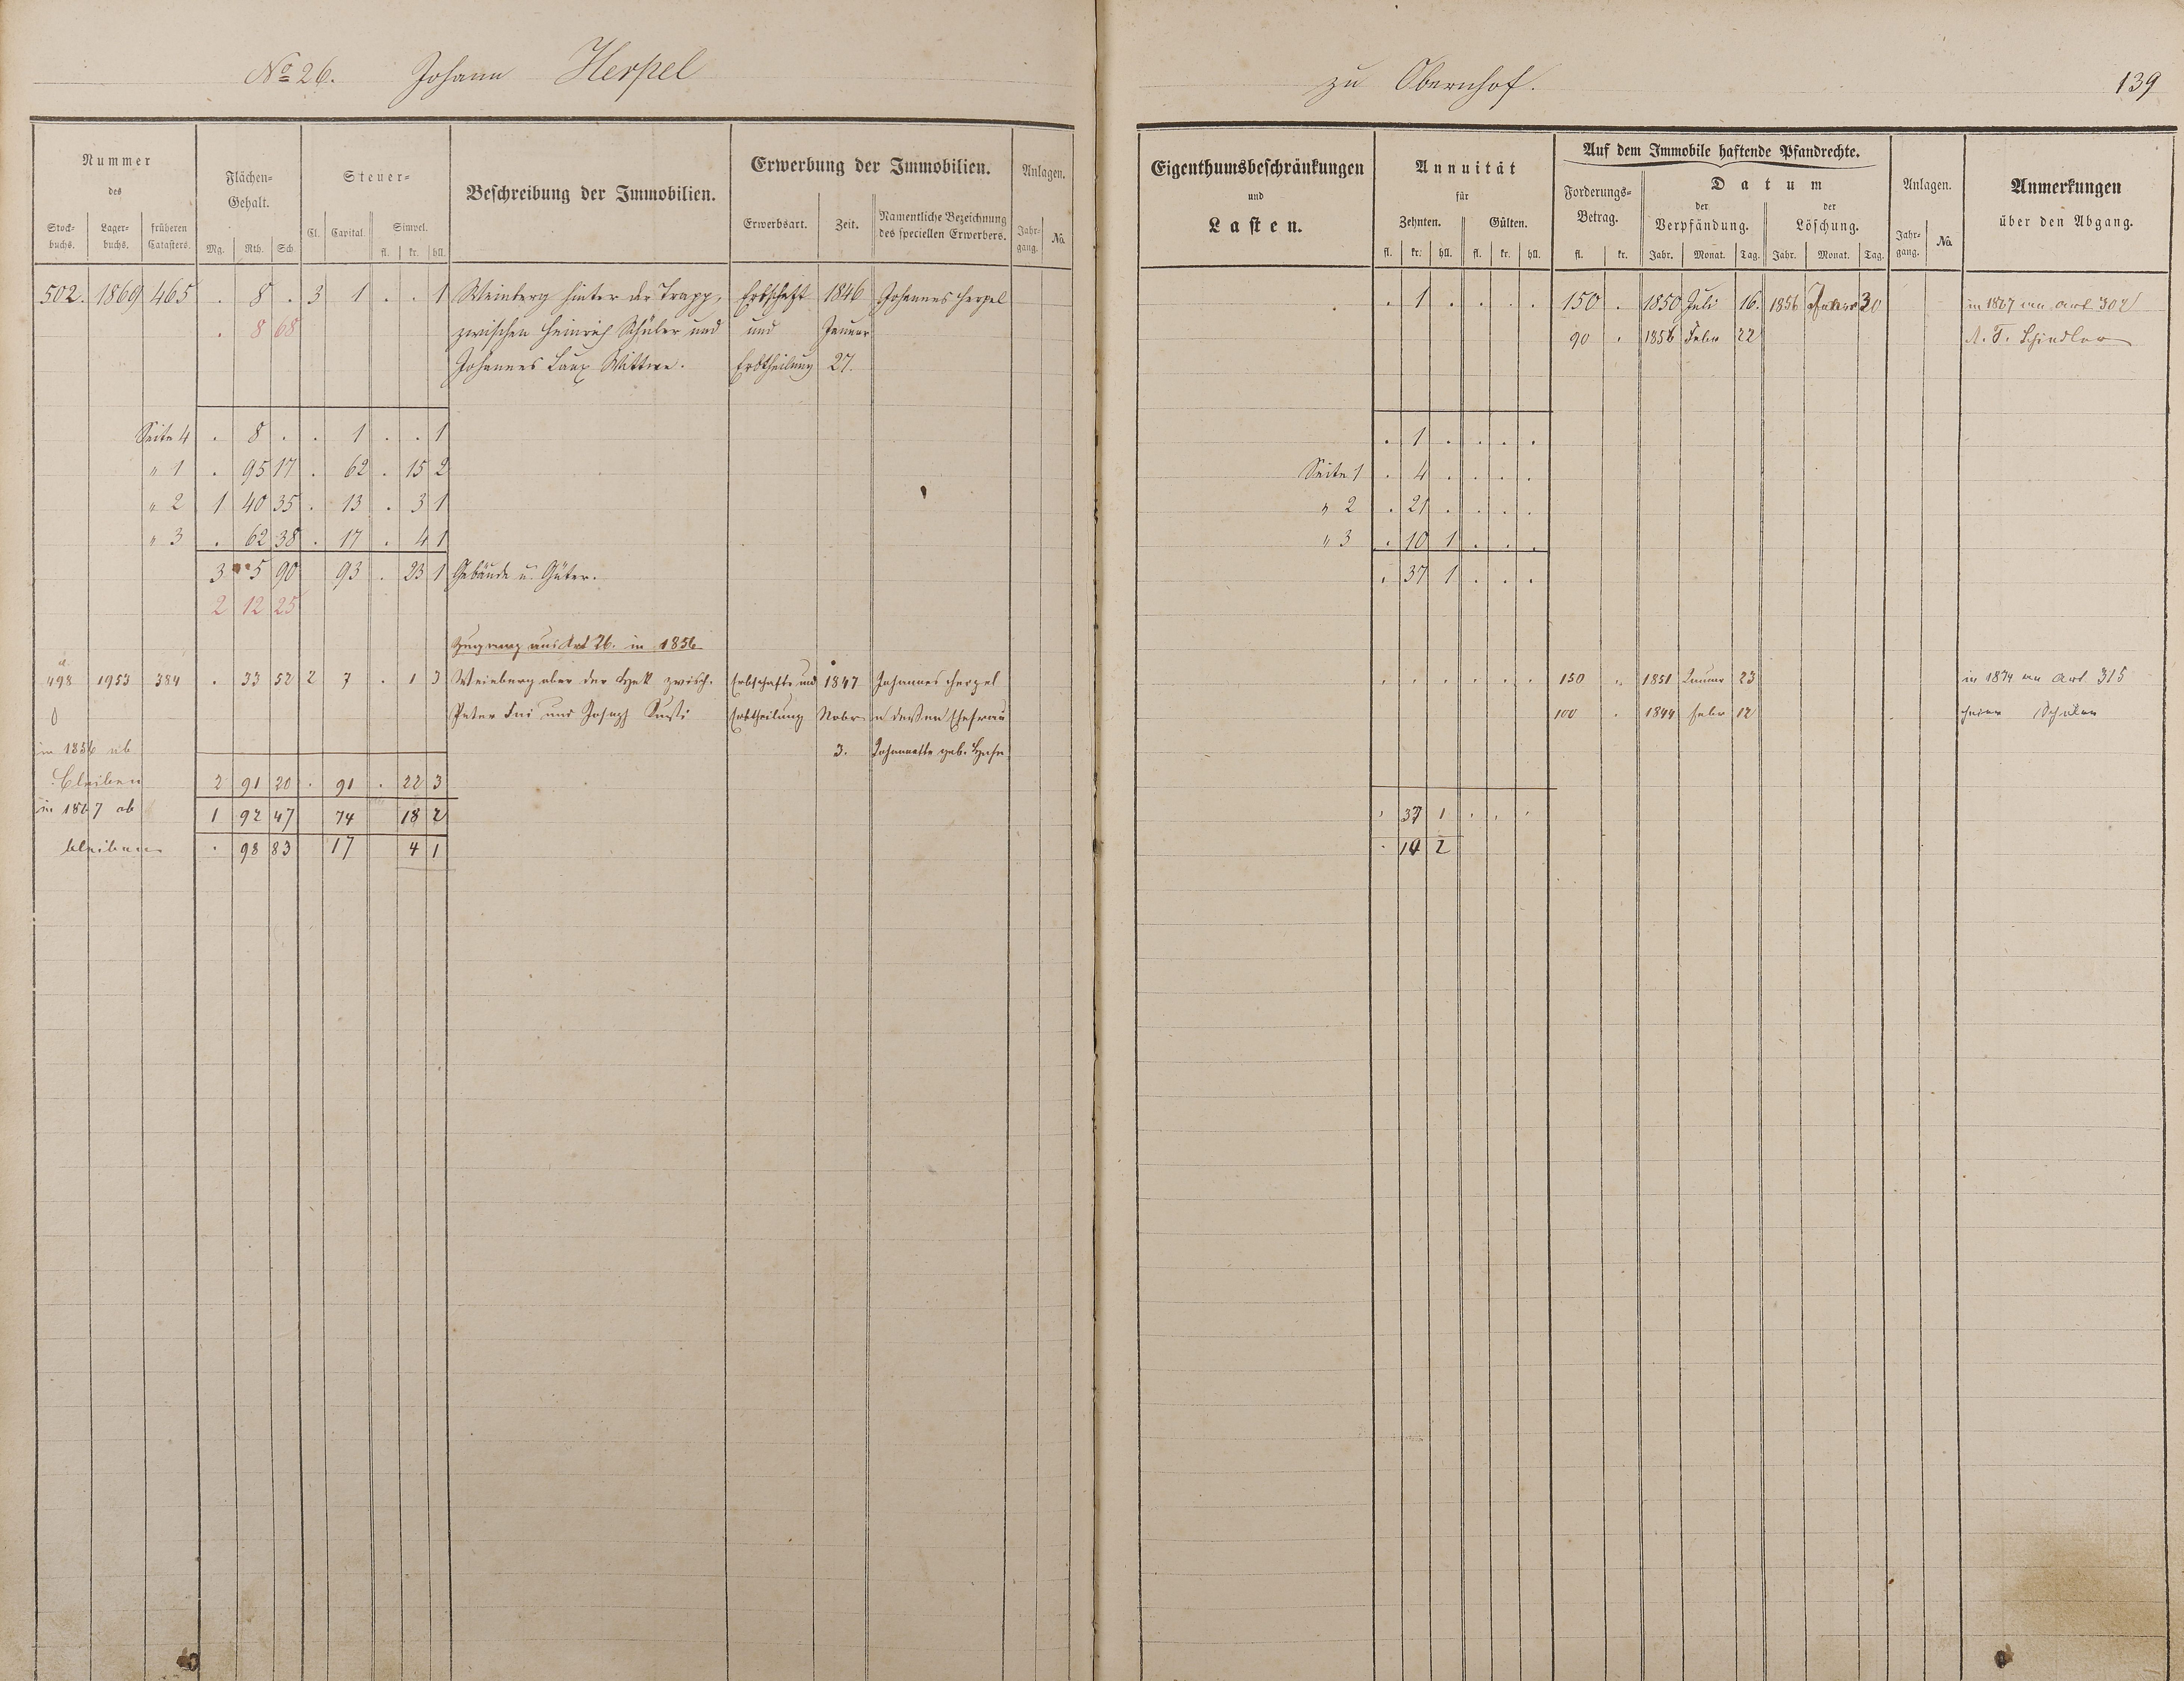 No 26. Johann Herpel
zu Obernhof.
139
Nummer
des
Stock-
buchs.
Lager-
buchs.
früheren
Catasters.
Flächen-
Gehalt.
Mg. Rth. Sch
Steuer-
Cl. Capital.
Simpel.
fl. kr. hll.
Beschreibung der Immobilien.
Erwerbung der Immobilien.
Erwerbsart. Zeit.
Namentliche Bezeichnung
des speciellen Erwerbers.
Anlagen.
Jahr-
gang. No.
502. 1869 465 . 8 . 3 1 . . 1 Weinberg hinter der Trapp, Erbschaft 1846 Johannes Herpel
. 8 68 zwischen Heinrich Schüler und und Januar
Johannes Laux Wittwe. Erbtheilung 27.
Seite 4 . 8 . . 1 . . 1
" 1 . 95 17 . 62 . 15 2
" 2 1 40 35 . 13 . 3 1
" 3 . 62 38 . 17 . 4 1
3 5 90 93 . 23 1 Gebäude u. Güter.
2 12 25
Zugang aus Art 26. in 1856
498 1953 384 . 33 52 2 7 . 1 3 Weinberg ober der zwisch. Erbschaft und 1847 Johannes Herpel
Peter und Joseph Erbtheilung Nobr u dessen Ehefrau
3. Johannette geb.
in 1856 ab
bleiben 2 91 20 . 91 . 22 3
in 1867 ab 1 92 47 74 18 2
bleiben . 98 83 17 4 1
Eigenthumsbeschränkungen
und
Lasten.
Annuität
für
Zehnten. Gülten.
fl. kr. hll. fl. kr. hll.
Auf dem Immobile haftende Pfandrechte.
Forderungs-
Betrag.
fl. kr.
Datum
der
Verpfändung.
Jahr. Monat. Tag.
der
Löschung.
Jahr. Monat. Tag.
Anlagen.
Jahr-
gang. No.
Anmerkungen
über den Abgang.
. 1 . . . . 150 . 1850 Juli 16. 1856 Januar 30 in 1867 an Art 302
90 . 1856 Febr 22 Schindler
. 1 . . . .
Seite 1 . 4 . . . .
" 2 . 21 . . . .
" 3 . 10 1 . . .
. 37 1 . . .
. . . . . . 150 . 1851 Januar 23 in 1874 an Art 315
100 . 1844 Febr 12
. 37 1 . . .
. 2